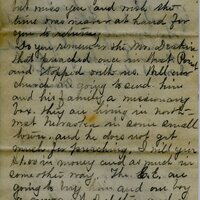 but miss you and wish the
time was near at hand for
you to return.
Do you remember the Mr. Deakin
that preached once in West Point
and stopped with us. Well our
church are going to send him
and his family a missionary
box, they are living in north-
west Nebraska in some small
town, and he does not get
much for preaching. I will give
$5.00 in money and as much in
some other way. The C.E. are
going to buy him and our boy